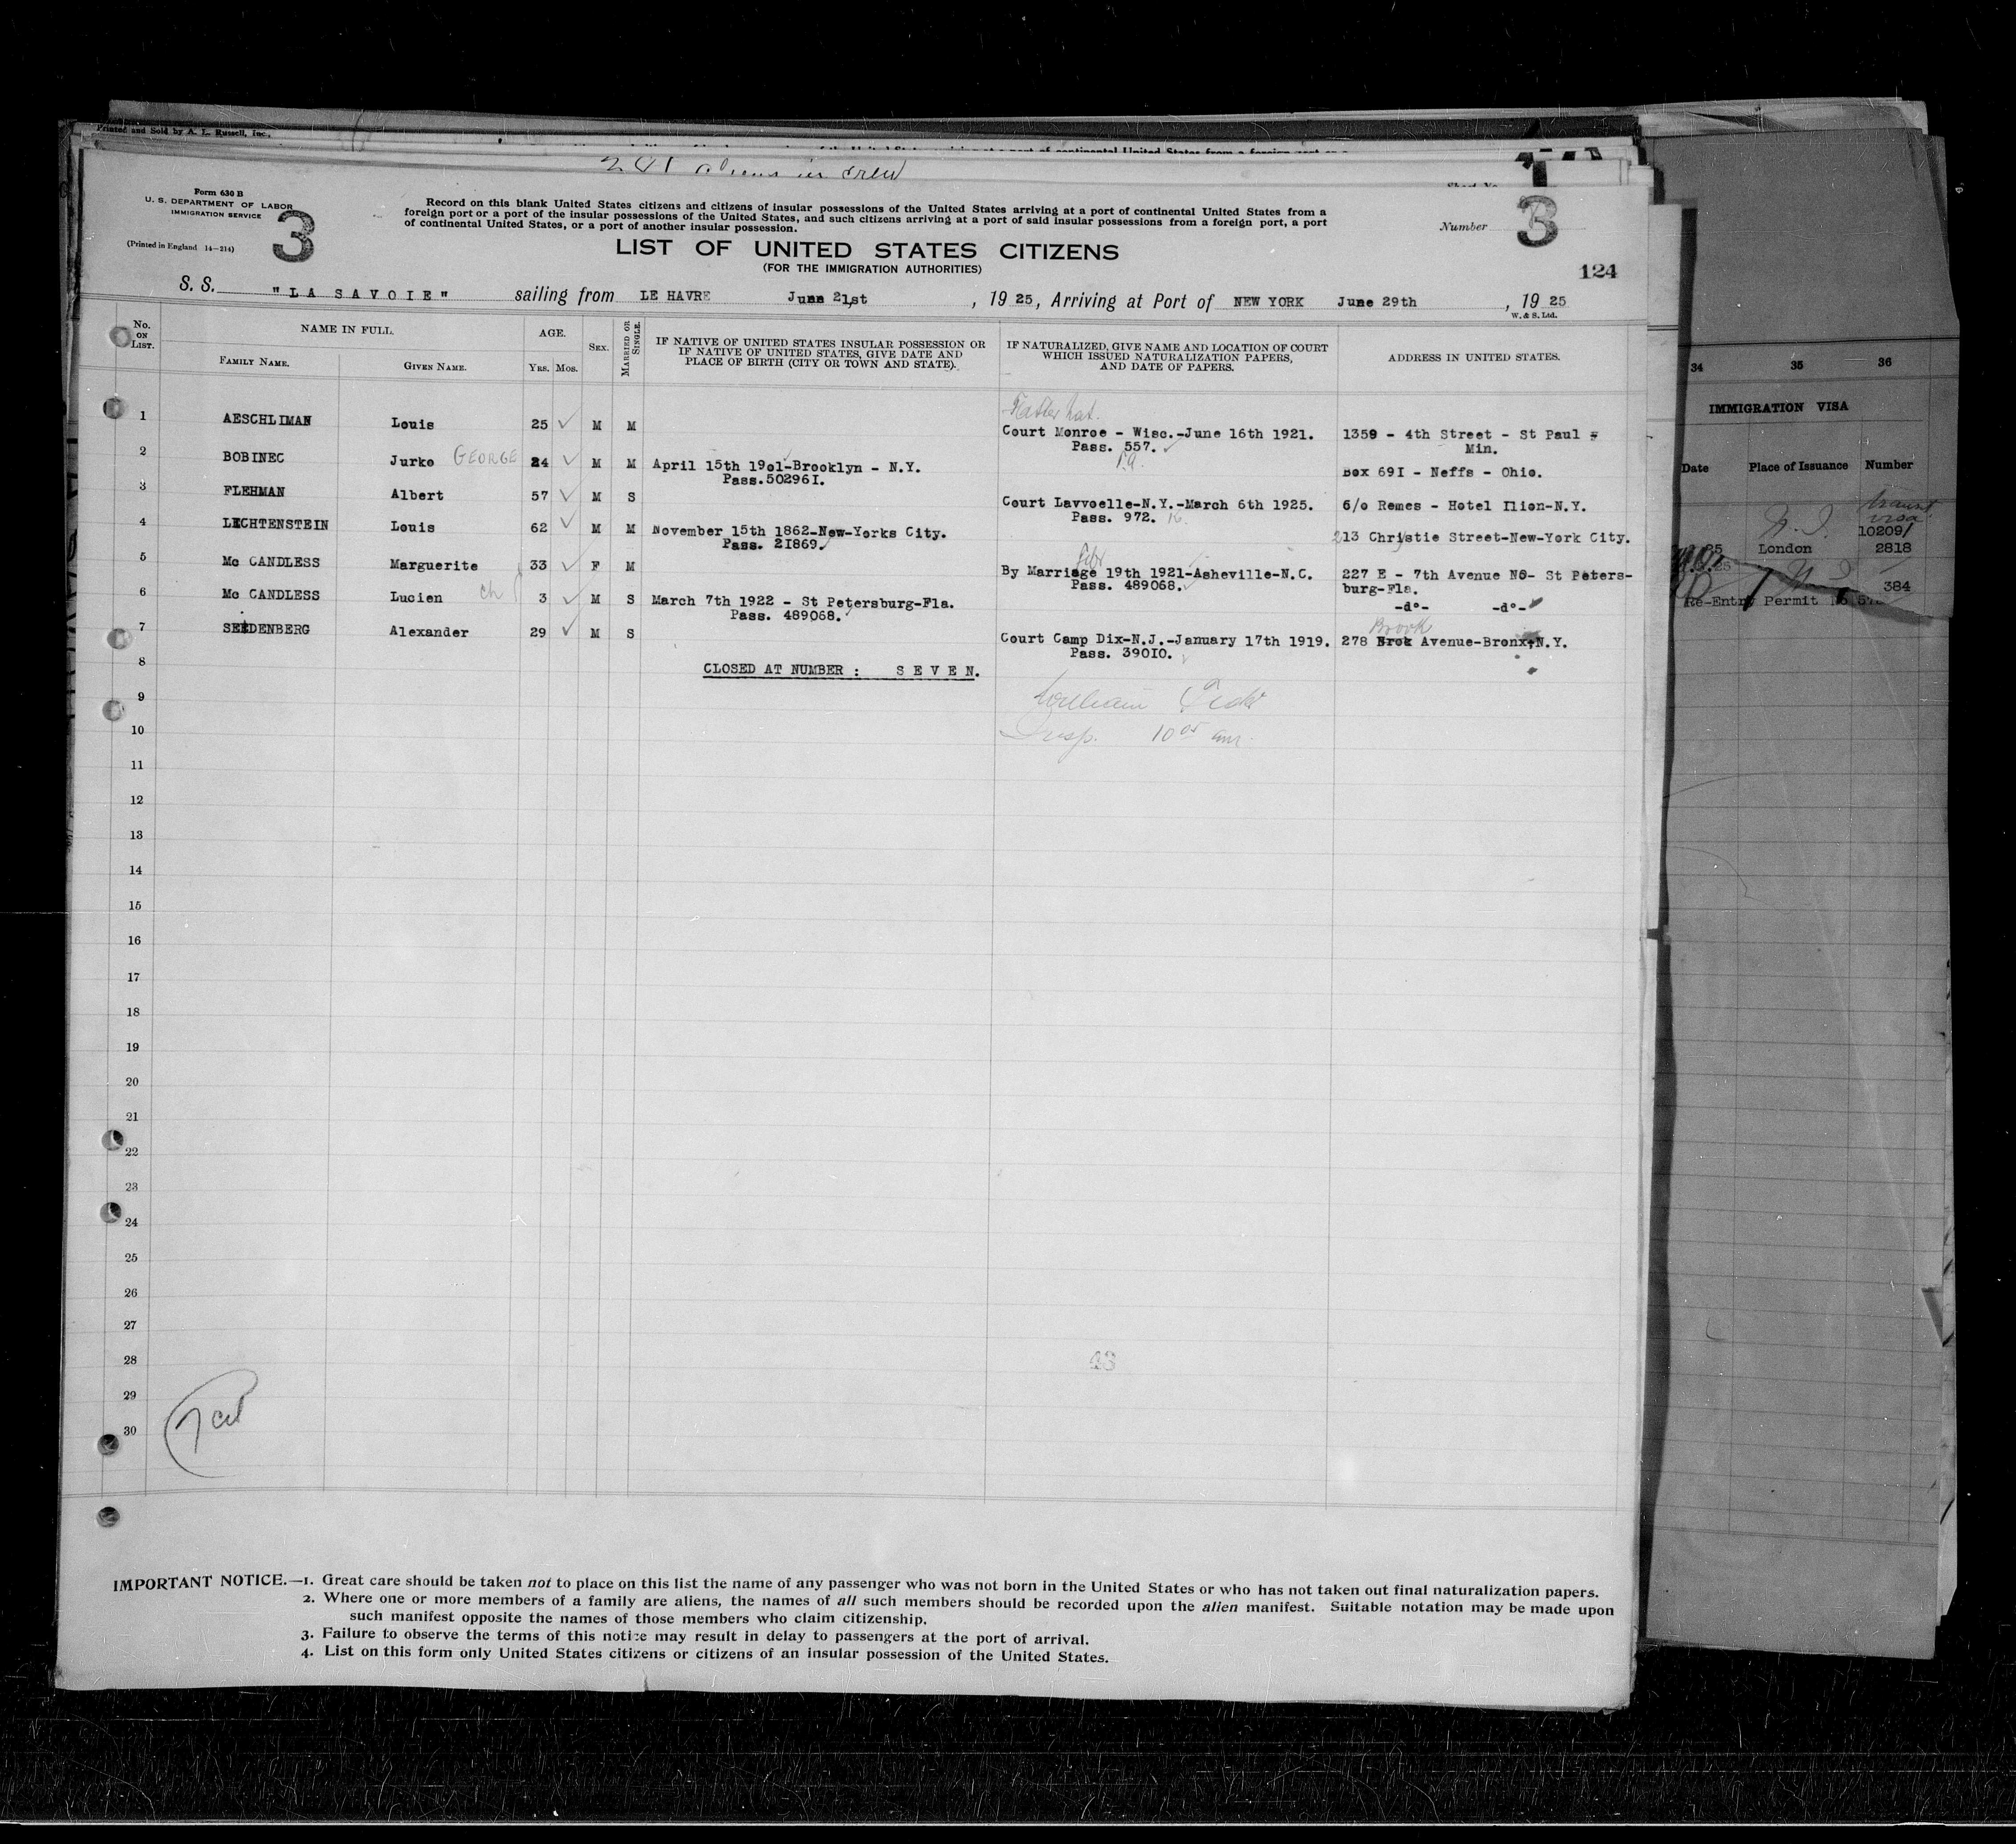 Printed and Sold by A. L. Russell, Inc.,
aliens in crew
Form 630 B
U. S. DEPARTMENT OF LABOR
IMMIGRATION SERVICE
(Printed in England 14—214)
3
Record on this blank United States citizens and citizens of insular possessions of the United States arriving at a port of continental United States from a
foreign port or a port of the insular possessions of the United States, and such citizens arriving at a port of said insular possessions from a foreign port, a port
of continental United States, or a port of another insular possession.
Number 3
LIST OF UNITED STATES CITIZENS
(FOR THE IMMIGRATION AUTHORITIES)
124
S. S. "LA SAVOIE" sailing from LE HAVRE June 21st, 1925, Arriving at Port of NEW YORK June 29th, 1925
W. & S. Ltd.
No. ON LIST.
NAME IN FULL.
FAMILY NAME. GIVEN NAME.
AGE.
YRS. MOS.
SEX.
MARRIED OR SINGLE.
IF NATIVE OF UNITED STATES INSULAR POSSESSION OR
IF NATIVE OF UNITED STATES, GIVE DATE AND
PLACE OF BIRTH (CITY OR TOWN AND STATE).
IF NATURALIZED, GIVE NAME AND LOCATION OF COURT
WHICH ISSUED NATURALIZATION PAPERS,
AND DATE OF PAPERS.
ADDRESS IN UNITED STATES.
1 AESCHLIMAN Louis 25 M M Court Monroe - Wisc.-June 16th 1921. 1359 - 4th Street - St Paul -
Pass. 557. Min.
2 BOBINEC Jurko GEORGE 24 M M April 15th 19o1-Brooklyn - N.Y. Box 691 - Neffs - Ohio.
Pass.502961.
3 FLEHMAN Albert 57 M S Court Lavvoelle-N.Y.-March 6th 1925. 6/o Remes - Hotel Ilion-N.Y.
Pass. 972.
4 LICHTENSTEIN Louis 62 M M November 15th 1862-New-Yorks City. 213 Christie Street-New-York City.
Pass. 21869.
5 Mc CANDLESS Marguerite 33 F M By Marriage 19th 1921-Asheville-N.C. 227 E - 7th Avenue NO- St Peters-
Pass. 489068. burg-Fla.
6 Mc CANDLESS Lucien ch 3 M S March 7th 1922 - St Petersburg-Fla. -d°- -d°-
Pass. 489068.
Brook
7 SEIDENBERG Alexander 29 M S Court Camp Dix-N.J.-January 17th 1919. 278 Brok Avenue-Bronx,N.Y.
Pass. 39010.
8 CLOSED AT NUMBER : SEVEN.
9 William
10 Insp. 10 05 am.
11
12
13
14
15
16
17
18
19
20
21
22
23
24
25
26
27
28
29
30
IMPORTANT NOTICE.—1. Great care should be taken not to place on this list the name of any passenger who was not born in the United States or who has not taken out final naturalization papers.
2. Where one or more members of a family are aliens, the names of all such members should be recorded upon the alien manifest. Suitable notation may be made upon
such manifest opposite the names of those members who claim citizenship.
3. Failure to observe the terms of this notice may result in delay to passengers at the port of arrival.
4. List on this form only United States citizens or citizens of an insular possession of the United States.
34 35 36
IMMIGRATION VISA
Date Place of Issuance Number
transit
visa
10209/
London 2818
384
Re-Entry Permit